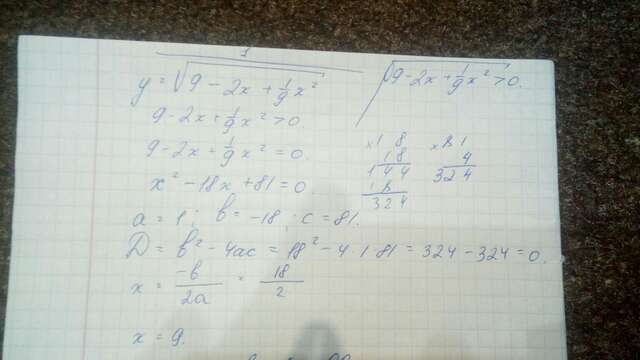 1
y = √(9 - 2x + 1/9 x²)
√(9 - 2x + 1/9 x²) > 0.
9 - 2x + 1/9 x² > 0
9 - 2x + 1/9 x² = 0.
x² - 18x + 81 = 0
× 1 8
1 8
1 4 4
1 8
3 2 4
× 8 1
4
3 2 4
a = 1; b = -18; c = 81.
D = b² - 4ac = 18² - 4·1·81 = 324 - 324 = 0.
x = -b/2a = 18/2
x = 9.